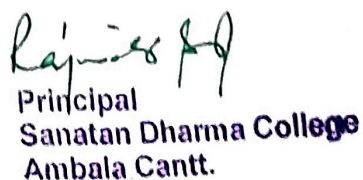 Principal
Sanatan Dharma College
Ambala Cantt.